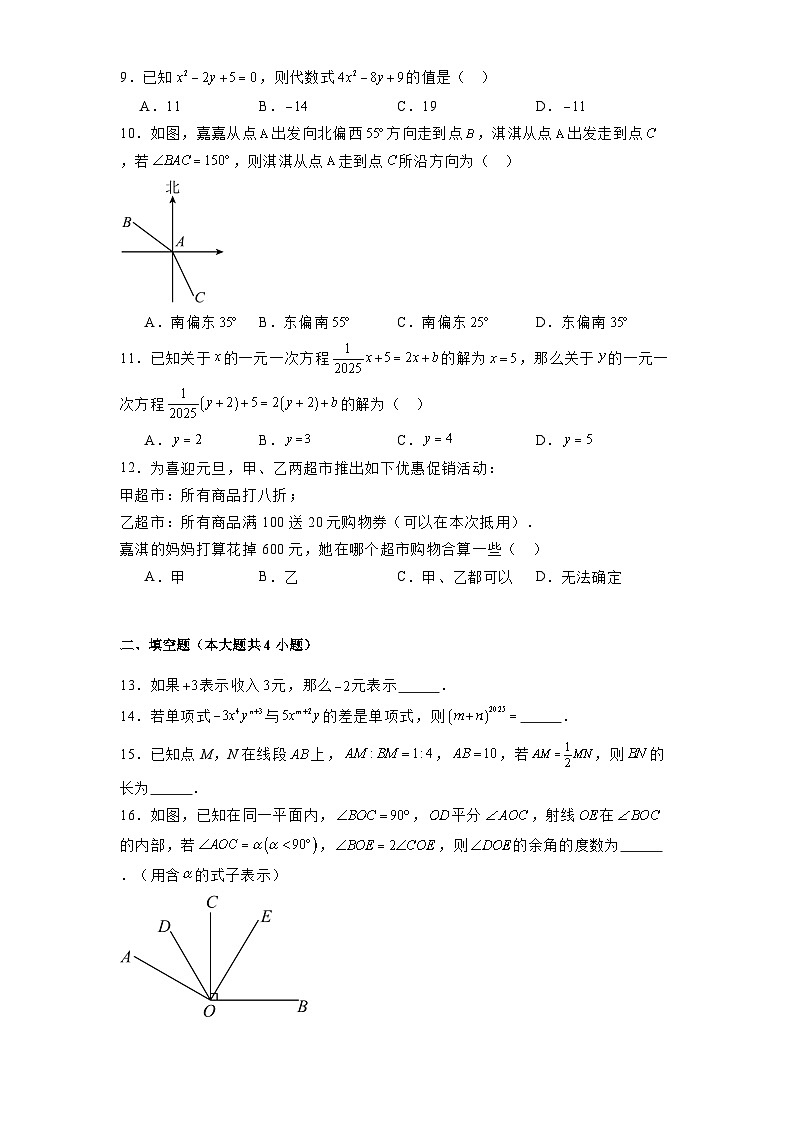 9．已知 x² − 2y + 5 = 0，则代数式 4x² − 8y + 9 的值是（　）
A．11　B．−14　C．19　D．−11
10．如图，嘉嘉从点A出发向北偏西55°方向走到点B，淇淇从点A出发走到点C
，若∠BAC = 150°，则淇淇从点A走到点C所沿方向为（　）
北
B
A
C
A．南偏东35°　B．东偏南55°　C．南偏东25°　D．东偏南35°
11．已知关于x的一元一次方程 1/2025 x + 5 = 2x + b 的解为 x = 5，那么关于y的一元一
次方程 1/2025 (y + 2) + 5 = 2(y + 2) + b 的解为（　）
A．y = 2　B．y = 3　C．y = 4　D．y = 5
12．为喜迎元旦，甲、乙两超市推出如下优惠促销活动：
甲超市：所有商品打八折；
乙超市：所有商品满100送20元购物券（可以在本次抵用）．
嘉淇的妈妈打算花掉600元，她在哪个超市购物合算一些（　）
A．甲　B．乙　C．甲、乙都可以　D．无法确定
二、填空题（本大题共4小题）
13．如果+3表示收入3元，那么−2元表示______．
14．若单项式 −3x⁴yⁿ⁺³ 与 5xᵐ⁺²y 的差是单项式，则 (m+n)²⁰²⁵ = ______．
15．已知点M，N在线段AB上，AM : BM = 1: 4，AB = 10，若 AM = 1/2 MN，则BN的
长为______．
16．如图，已知在同一平面内，∠BOC = 90°，OD平分∠AOC，射线OE在∠BOC
的内部，若∠AOC = α(α < 90°)，∠BOE = 2∠COE，则∠DOE的余角的度数为______
．（用含α的式子表示）
C
D
E
A
O
B